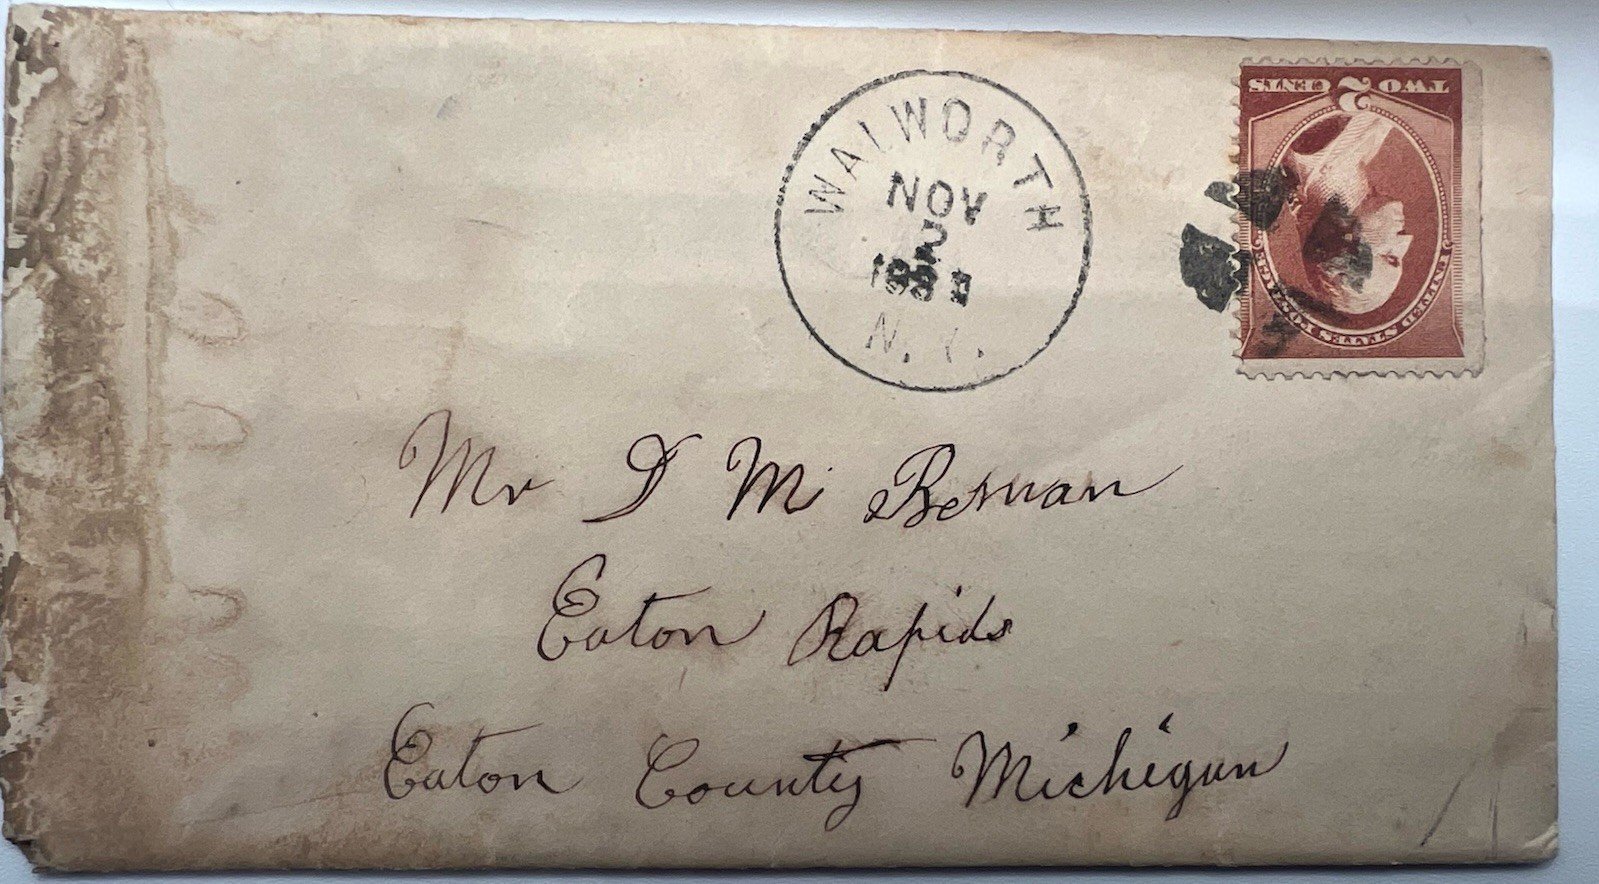 WALWORTH
NOV
2
188
N.Y.
TWO 2 CENTS
UNITED STATES POSTAGE
Mr D M
Eaton Rapids
Eaton County Michigan